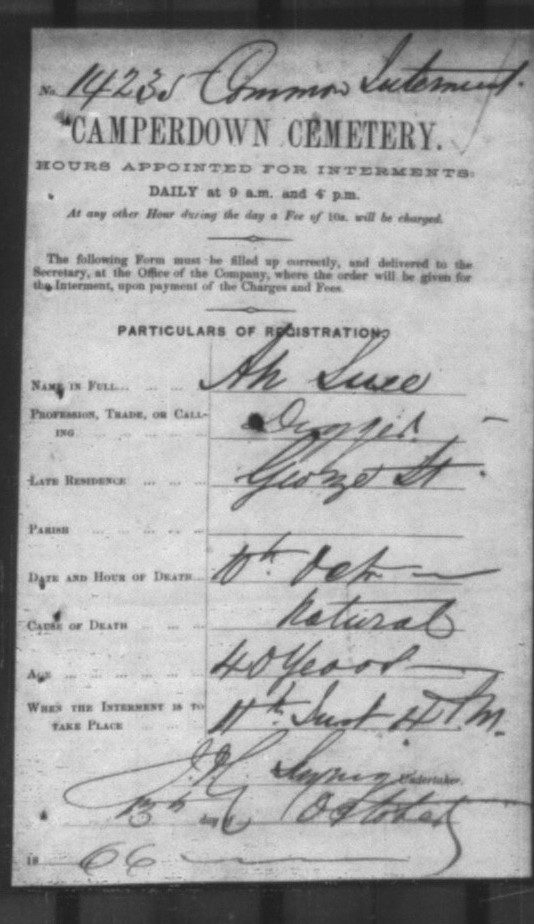 No. 14235 Common Interment.
CAMPERDOWN CEMETERY.
HOURS APPOINTED FOR INTERMENTS:
DAILY at 9 a.m. and 4 p.m.
At any other Hour during the day a Fee of 10s. will be charged.
The following Form must be filled up correctly, and delivered to the
Secretary, at the Office of the Company, where the order will be given for
the Interment, upon payment of the Charges and Fees.
PARTICULARS OF REGISTRATION
NAME IN FULL... ... ... Ah
PROFESSION, TRADE, OR CALL-
ING ... ... ... Digger.
LATE RESIDENCE ... ... George St.
PARISH ... ... ... ...
DATE AND HOUR OF DEATH... 10th Octr
CAUSE OF DEATH ... ... Natural
AGE ... ... ... ... ... 40 Years
WHEN THE INTERMENT IS TO
TAKE PLACE ... 11th Inst 4 P.M.
Undertaker.
day of October
18 66